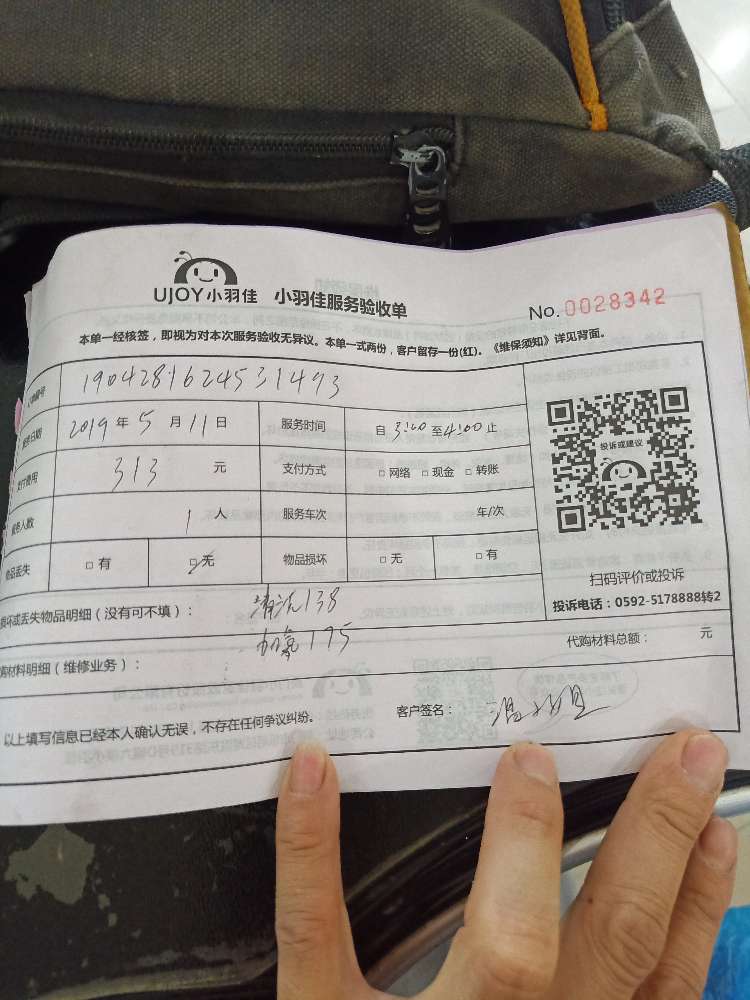 UJOY小羽佳 小羽佳服务验收单
No.0028342
本单一经核签，即视为对本次服务验收无异议。本单一式两份，客户留存一份(红)。《维保须知》详见背面。
编号 1904281624531493
2019年5月11日 服务时间 自3:00至4:00止
费用 313元 支付方式 □网络 □现金 □转账
人数 1人 服务车次 年/次
物品丢失 □有 □无 物品损坏 □无 □有
投诉或建议
扫码评价或投诉
投诉电话：0592-5178888转2
损坏或丢失物品明细（没有可不填）： 清洗138
材料明细（维修业务）： 加氟175
代购材料总额： 元
以上填写信息已经本人确认无误，不存在任何争议纠纷。 客户签名：